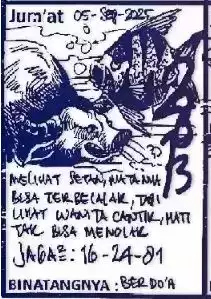 Jum'at 05-Sep-2025
MELIHAT SETAN, MATANYA
BISA TERBELALAK, TAPI
LIHAT WANITA CANTIK, HATI
TAK BISA MENOLAK
JAGA2: 16-24-81
BINATANGNYA : BERDO'A